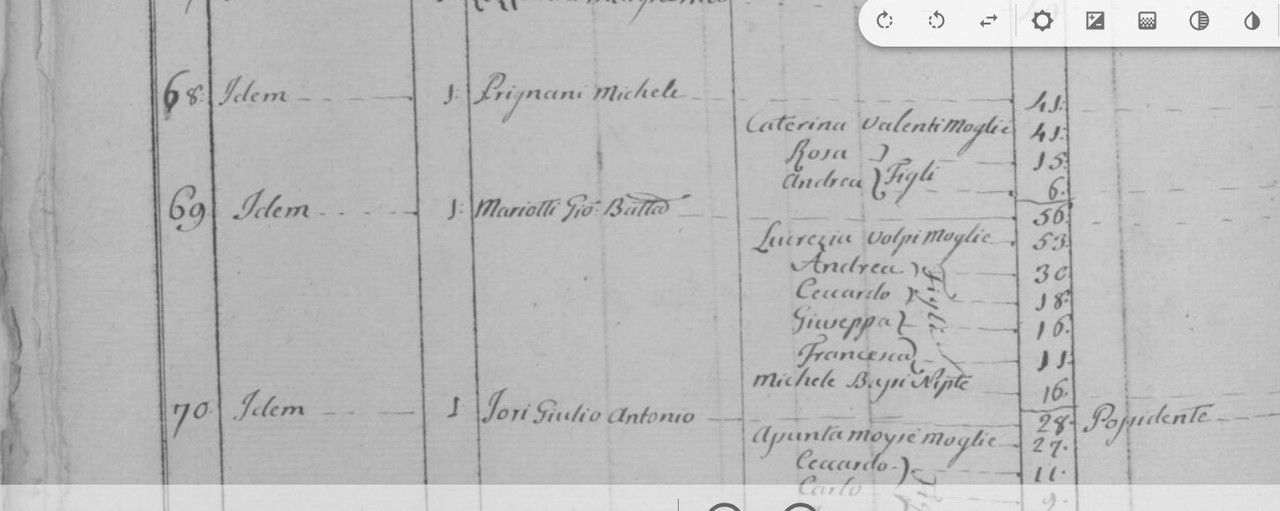 68: Idem 1: Prignani Michele 41:
Caterina Valenti Moglie 41:
Rosa 15:
Andrea } Figli 6:
69 Idem 1: Mariotti Gio: Batta 56:
Lucrezia Volpi Moglie 53:
Andrea 30
Ceccardo 18:
Giuseppa Figli 16:
Francesca 11:
Michele Nipte 16:
70 Idem 1 Jori Giulio Antonio 28: Possidente
Moglie 27:
Ceccardo 11:
Carlo 9: